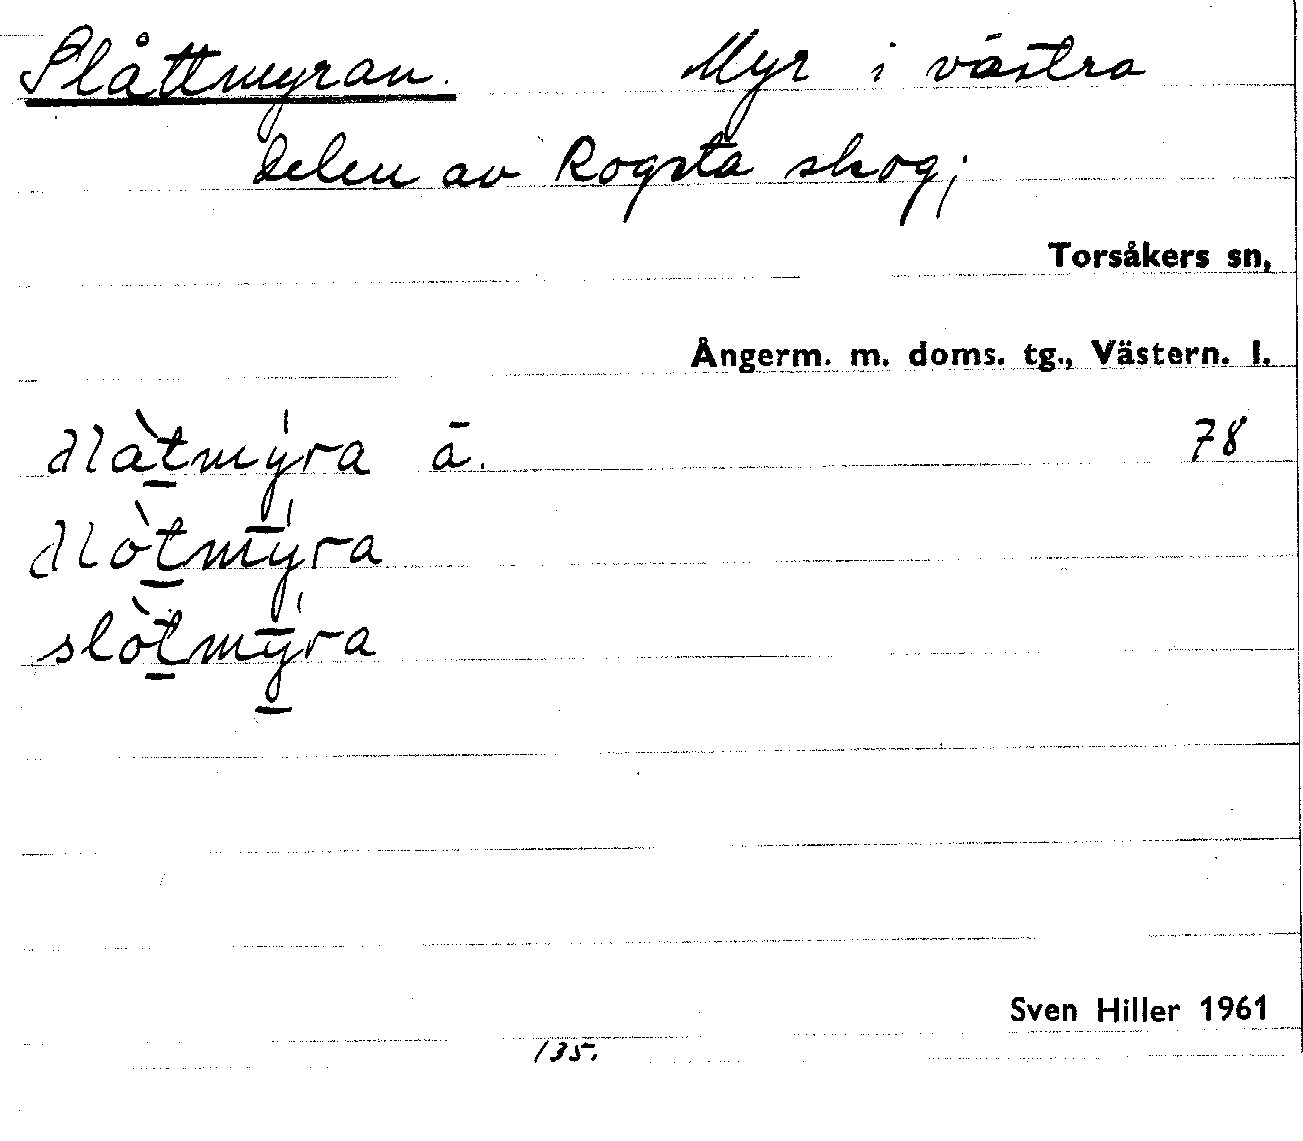 Slåttmyran. Myr i västra
delen av Rogsta skog;
Torsåkers sn,
Ångerm. m. doms. tg., Västern. l.
slàtmýra ā. 78
slòtmýra
slòtmýra
Sven Hiller 1961
135.